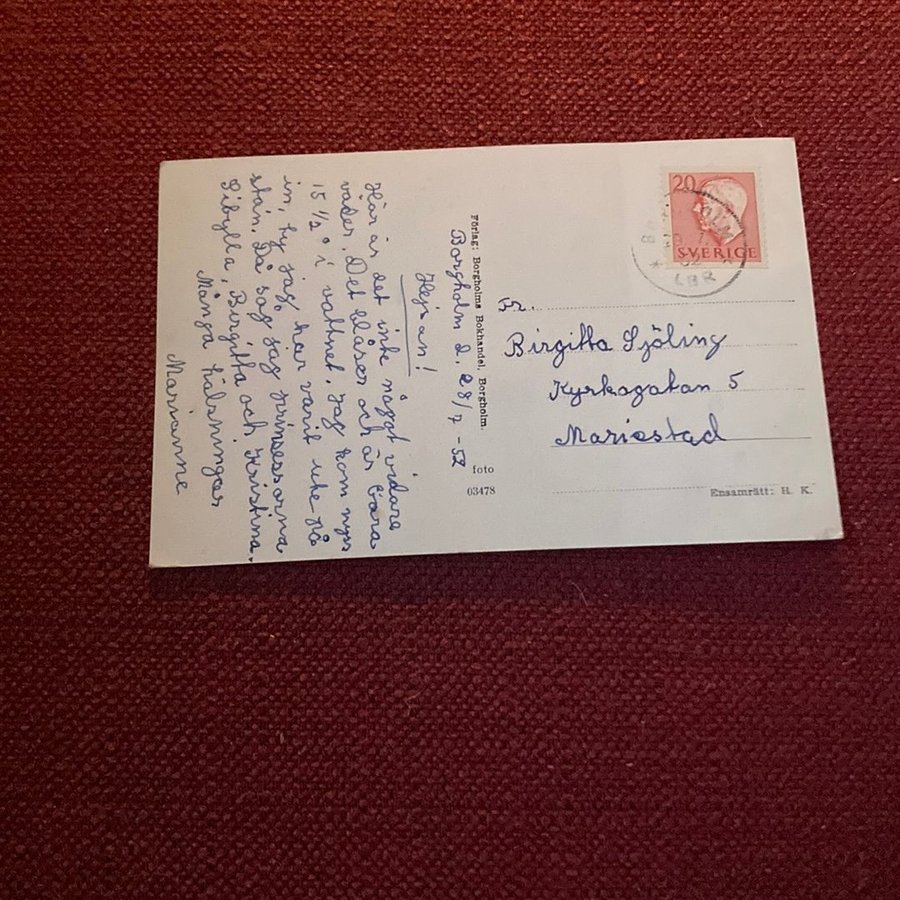 Borgholm d. 28/7 - 52
Hejsan!
Här är det inte något vidare
väder. Det blåser och är bara
15 1/2 ° i vattnet. Jag kom nyss
in, ty jag har varit ute på
stan. Då såg jag prinsessorna
Sibylla, Birgitta och Kristina.
Många hälsningar
Marianne
Förlag: Borgholms Bokhandel, Borgholm.
foto
03478
20
SVERIGE
LBR
Fr.
Birgitta Sjöling
Kyrkogatan 5
Mariestad
Ensamrätt: H. K.